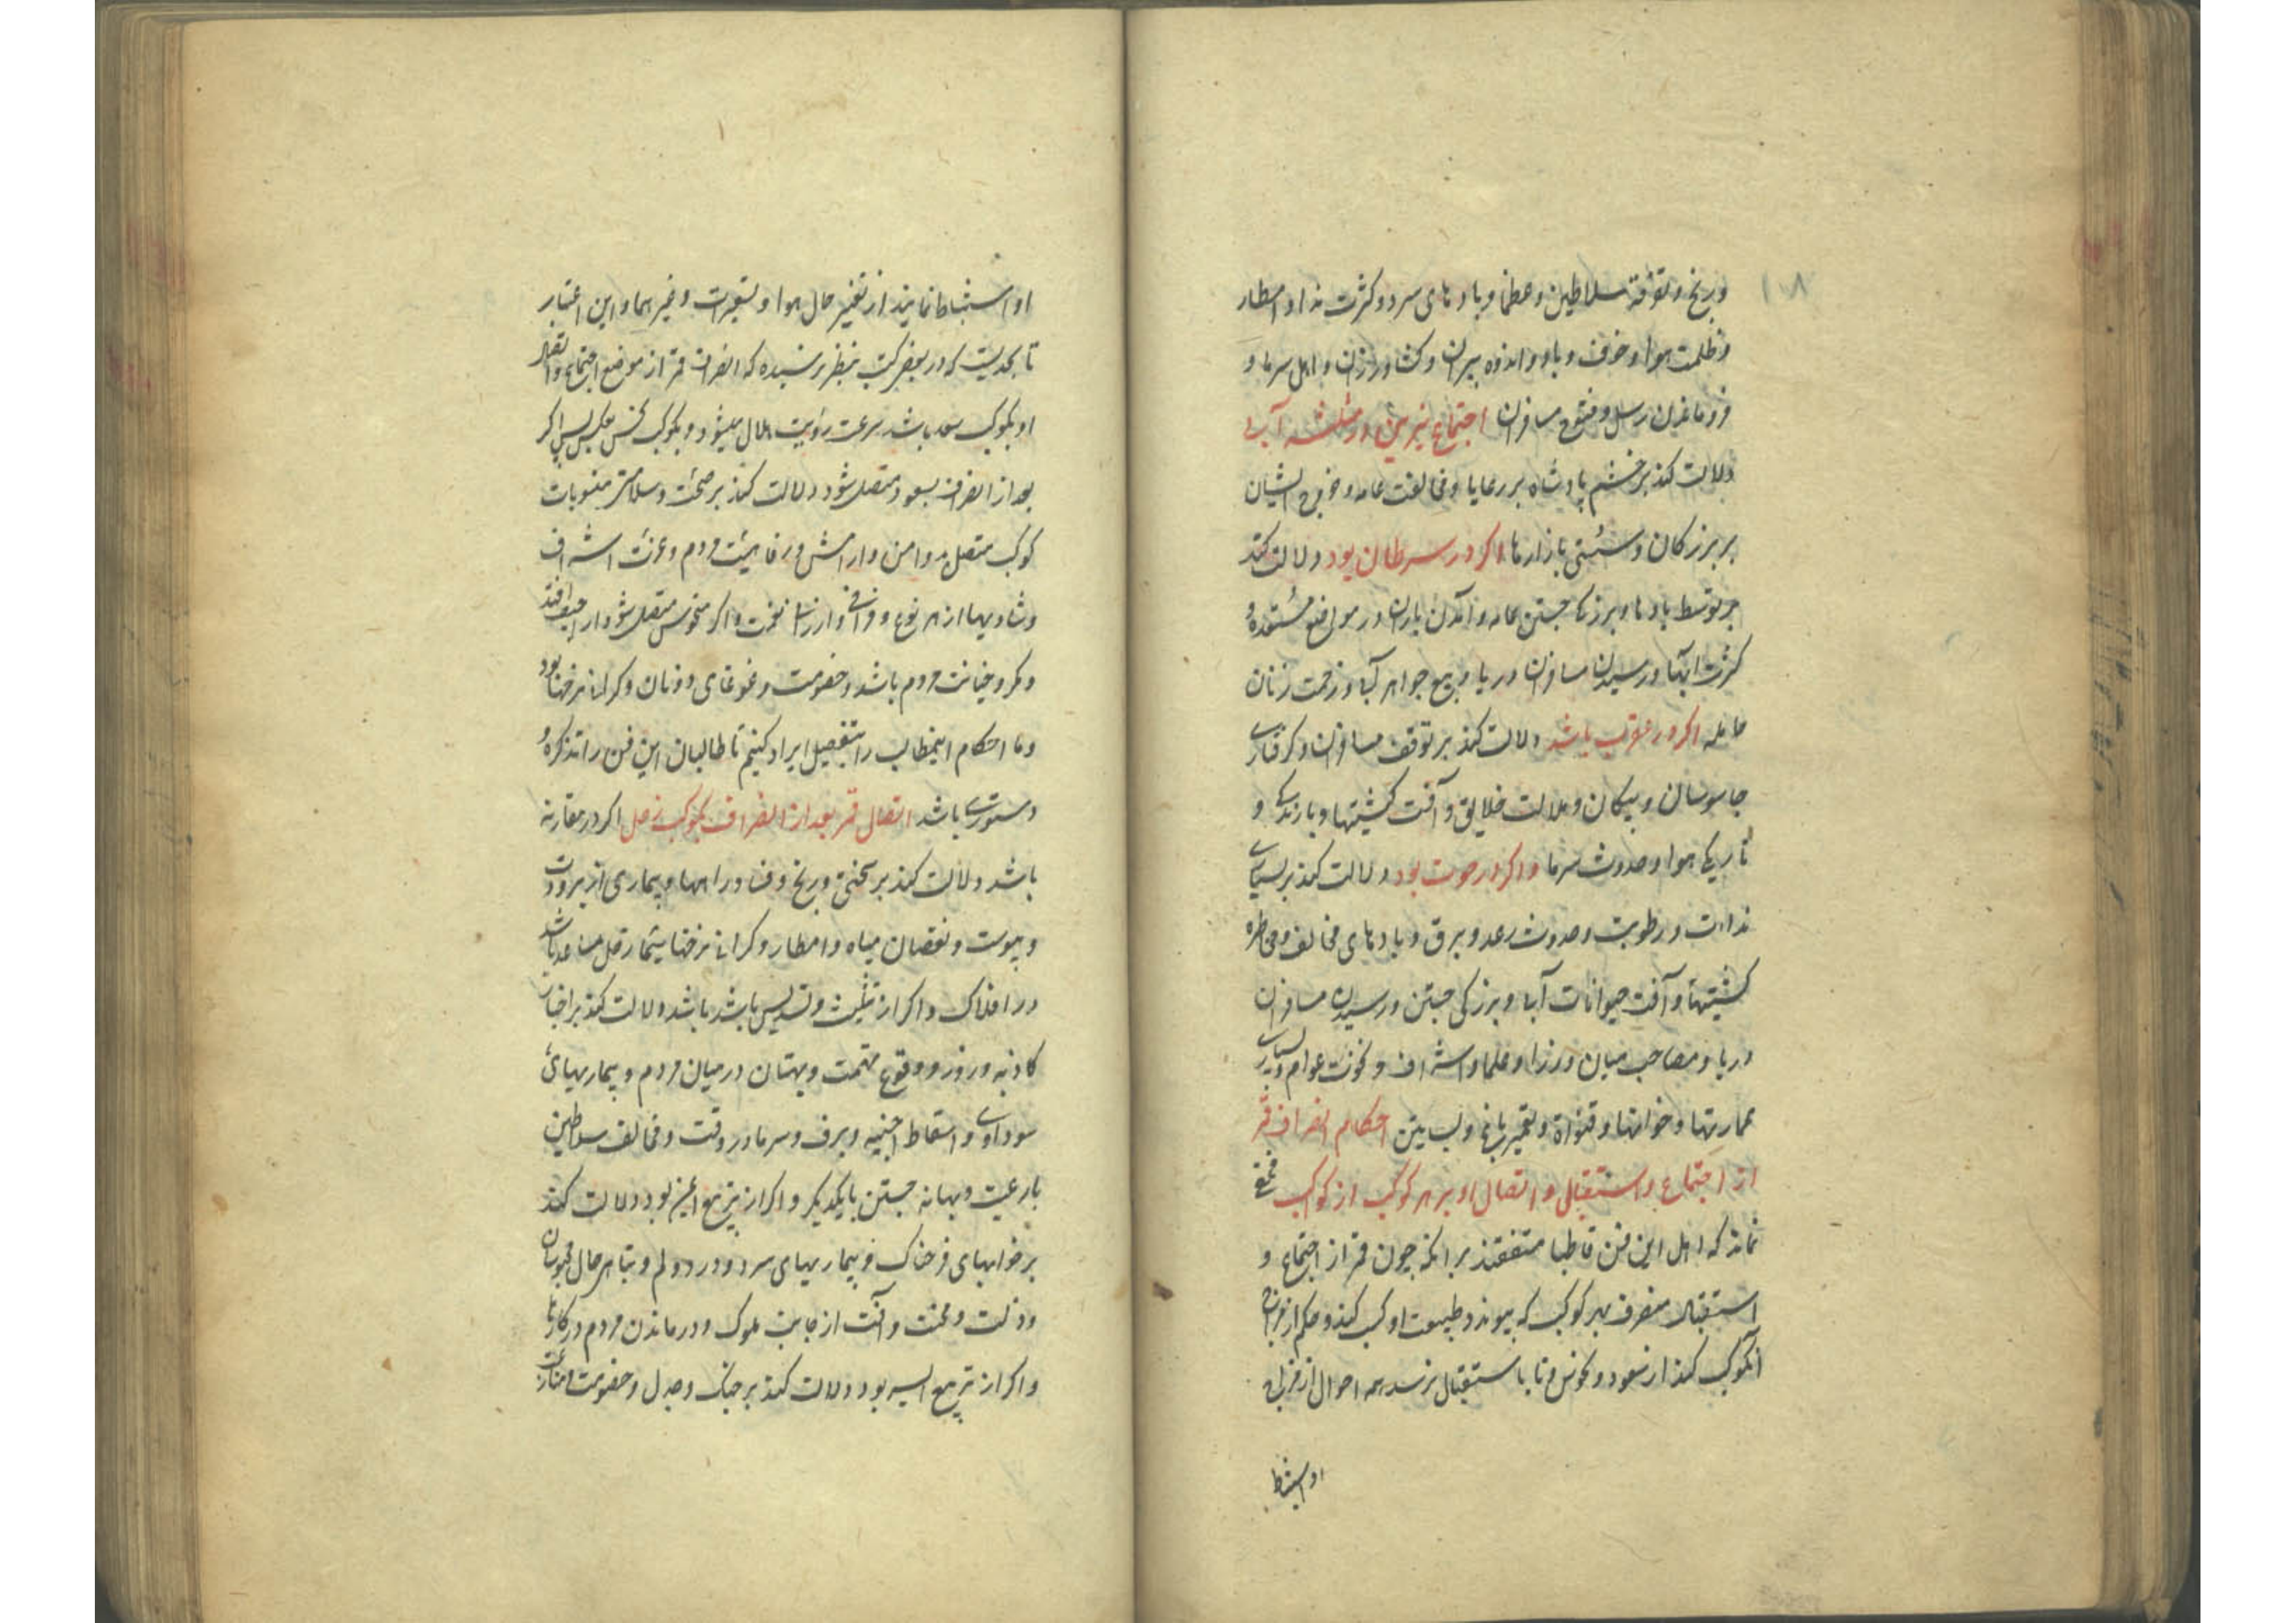 ۱۰۸
ورنج و تفرقهٔ سلاطین و عظما و بادهای سرد و کثرت نداوا مطار
و ظلمت هوا و خوف و باد و اندوه پیران و کشاورزان و اهل سرما و
فروماندن رسل و فتوح مسافران اجتماع نیرین در مثلثه آبی
دلالت کند بر خشم پادشاه بر رعایا و مخالفت عامه و خروج ایشان
بر بزرکان و سستی بازارها اکر در سرطان بود دلالت کند
بر توسط بادها و بزرکی جستن عامه و آمدن باران در مواضع مستعده و
کثرت آبها و رسیدن مسافران دریا و بیع جواهر آبی و زحمت زنان
حامله اکر در عقرب باشد دلالت کند بر توقف مسافران و کرفتاری
جاسوسان و پیکان و ملالت خلایق و آفت کشتیها و بارندکی و
تاریکی هوا و حدوث سرما و اکر در حوت بود دلالت کند بر بسیاری
نداوت و رطوبت و حدوث رعد و برق و بادهای مخالف و مخاطره
کشتیها و آفت حیوانات آبی و بزرکی جستن و رسیدن مسافران
دریا و مصاحب میان وزرا و علما و اشراف و نخوت عوام و بسیاری
عمارتها و خوانها و قنواة و تعمیر باغ و بساتین احکام انصراف قمر
از اجتماع و استقبال و اتصال او بر هر کوکب از کواکب مخفی
نماند که اهل این فن قاطبا متفقند بر انکه چون قمر از اجتماع و
استقبال منصرف بهر کوکب که پیوندد طبیعت او کسب کند و حکم از مزاج
آنکوکب کند از سعود و نحوس و تا باستقبال نرسد همه احوال از قران
او استنباط
او استنباط نمایند از تغییر حال هوا و تسعیرات و غیرهما و این اعتبار
تا بحدیست که در بعض کتب بنظر رسیده که انصراف قمر از موضع اجتماع و اتصال
او بکوکب سعد باشد سرعت رؤیت هلال میشود و بکوکب نحس عکس پس اکر
بعد از انصراف بسعود متصل شود دلالت کند بر صحت و سلامتی منسوبات
کوکب متصل به و امن و ارامش و رفاهیت مردم و عزت اشراف
و شادیها از هر نوع و فراخی و ارزانی نعمت و اکر بنحوس متصل شود اراجیف افتد
و مکر و خیانت مردم باشد و خصومت و غوغای دونان و کرانی نرخها بود
و ما احکام اینمطالب را بتفصیل ایراد کنیم تا طالبان این فن را تذکره و
دستوری باشد اتصال قمر بعد از انصراف بکوکب زحل اکر در مقارنه
باشد دلالت کند بر سختی و رنج و فساد راهها و بیماری از برودت
و یبوست و نقصان میاه و امطار و کرانی نرخها سیما زحل مساعد باشد
در افلاک و اکر از تثلیث و تسدیس باشد باشد دلالت کند بر اخبار
کاذبه و زور و وقوع تهمت و بهتان در میان مردم و بیماریهای
سوداوی و اسقاط اجنیه و برف و سرما در وقت و مخالف سلاطین
با رعیت و بهانه جستن با یکدیکر و اکر از تربیع ایمن بود دلالت کند
بر خوابهای فرخناک و بیماریهای سرد و درد دلم و تباهی حال محبوسان
و ذلت و محنت و آفت از جانب ملوک و درماندن مردم در کارها
و اکر از تربیع ایسر بود دلالت کند بر جنک و جدل و خصومت